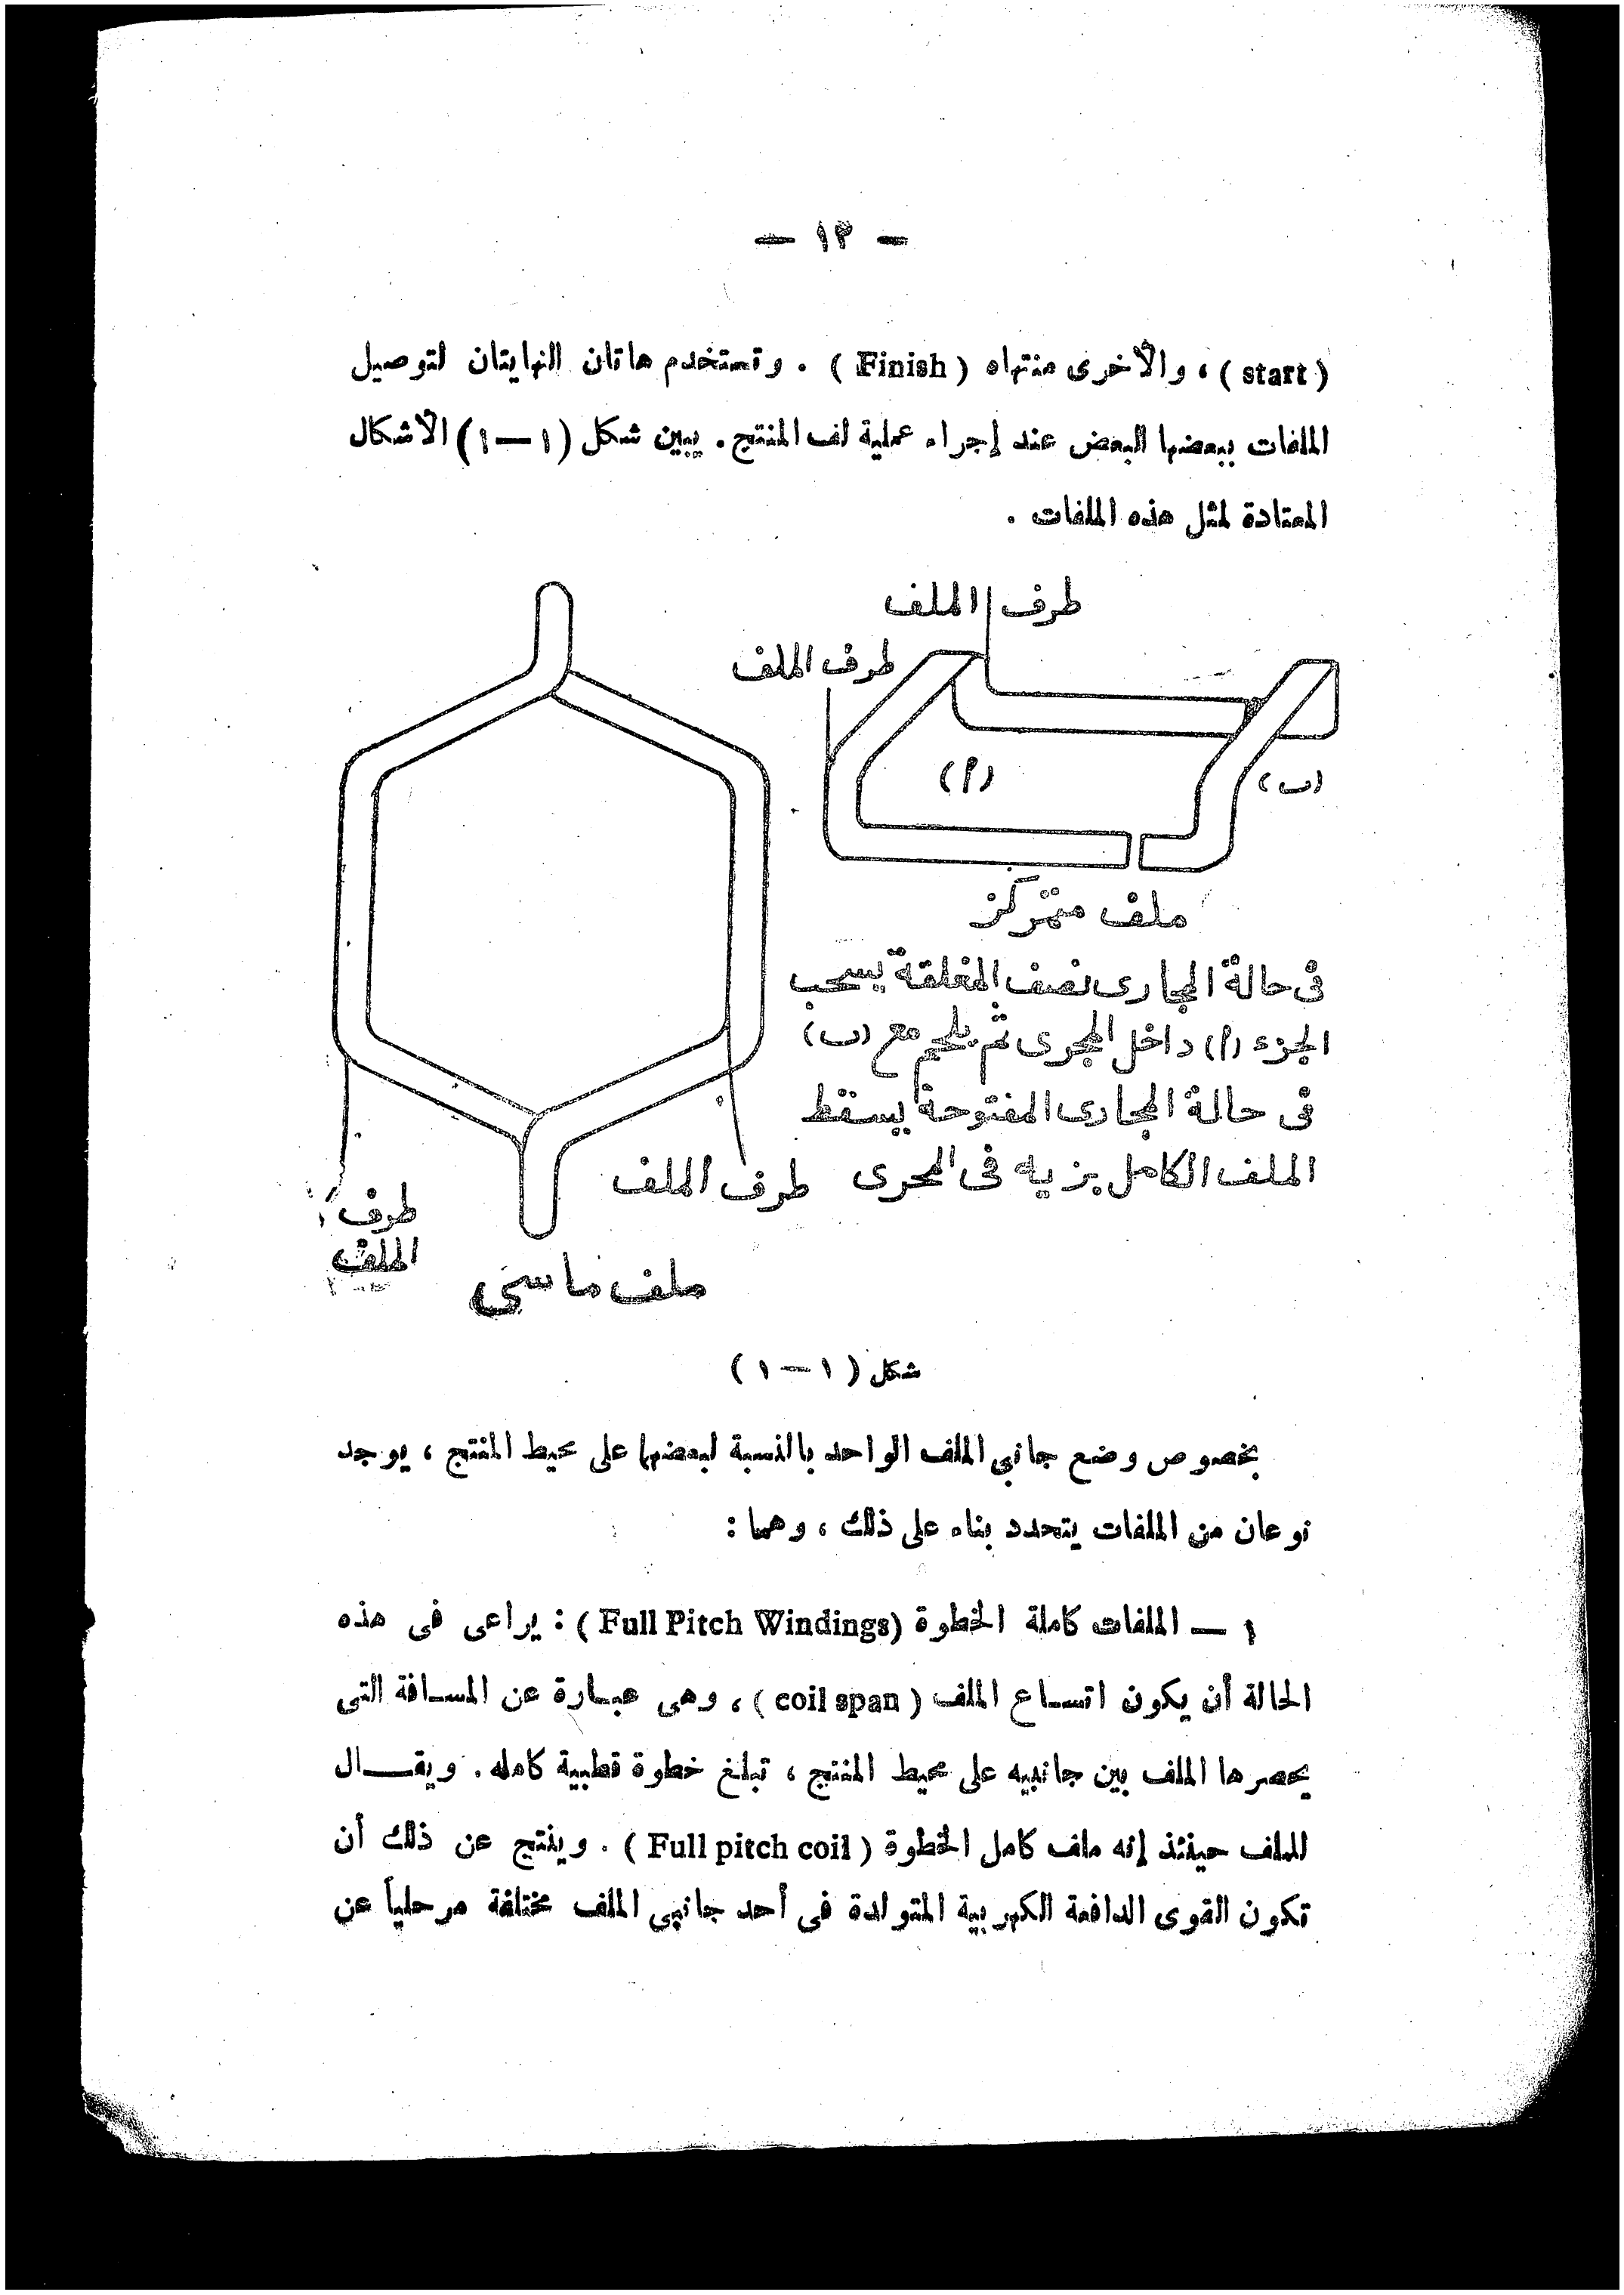 — ١٣ —
( start ) ، والآخرى منتهاه ( Finish ) . وتستخدم هاتان النهايتان لتوصيل
الملفات ببعضها البعض عند إجراء عملية لف المنتج . يبين شكل ( ١ — ١ ) الأشكال
المعتادة لمثل هذه الملفات .
طرف الملف
طرف الملف
(أ)
(ب)
ملف متمركز
فى حالة المجارى نصف المغلقة يسحب
الجزء (أ) داخل المجرى ثم يلحم مع (ب)
فى حالة المجارى المفتوحة يسقط
الملف الكامل بزيه فى المجرى
طرف الملف
طرف
الملف
ملف ماسى
شكل ( ١ — ١ )
بخصوص وضع جانبى الملف الواحد بالنسبة لبعضها على محيط المنتج ، يوجد
نوعان من الملفات يتحدد بناء على ذلك ، وهما :
١ — الملفات كاملة الخطوة ( Full Pitch Windings ) : يراعى فى هذه
الحالة أن يكون اتساع الملف ( coil span ) ، وهى عبارة عن المسافة التى
يحصرها الملف بين جانبيه على محيط المنتج ، تبلغ خطوة قطبية كامله . ويقال
للملف حينئذ إنه ملف كامل الخطوة ( Full pitch coil ) . وينتج عن ذلك أن
تكون القوى الدافعة الكهربية المتولدة فى أحد جانبى الملف مختلفة مرحلياً عن